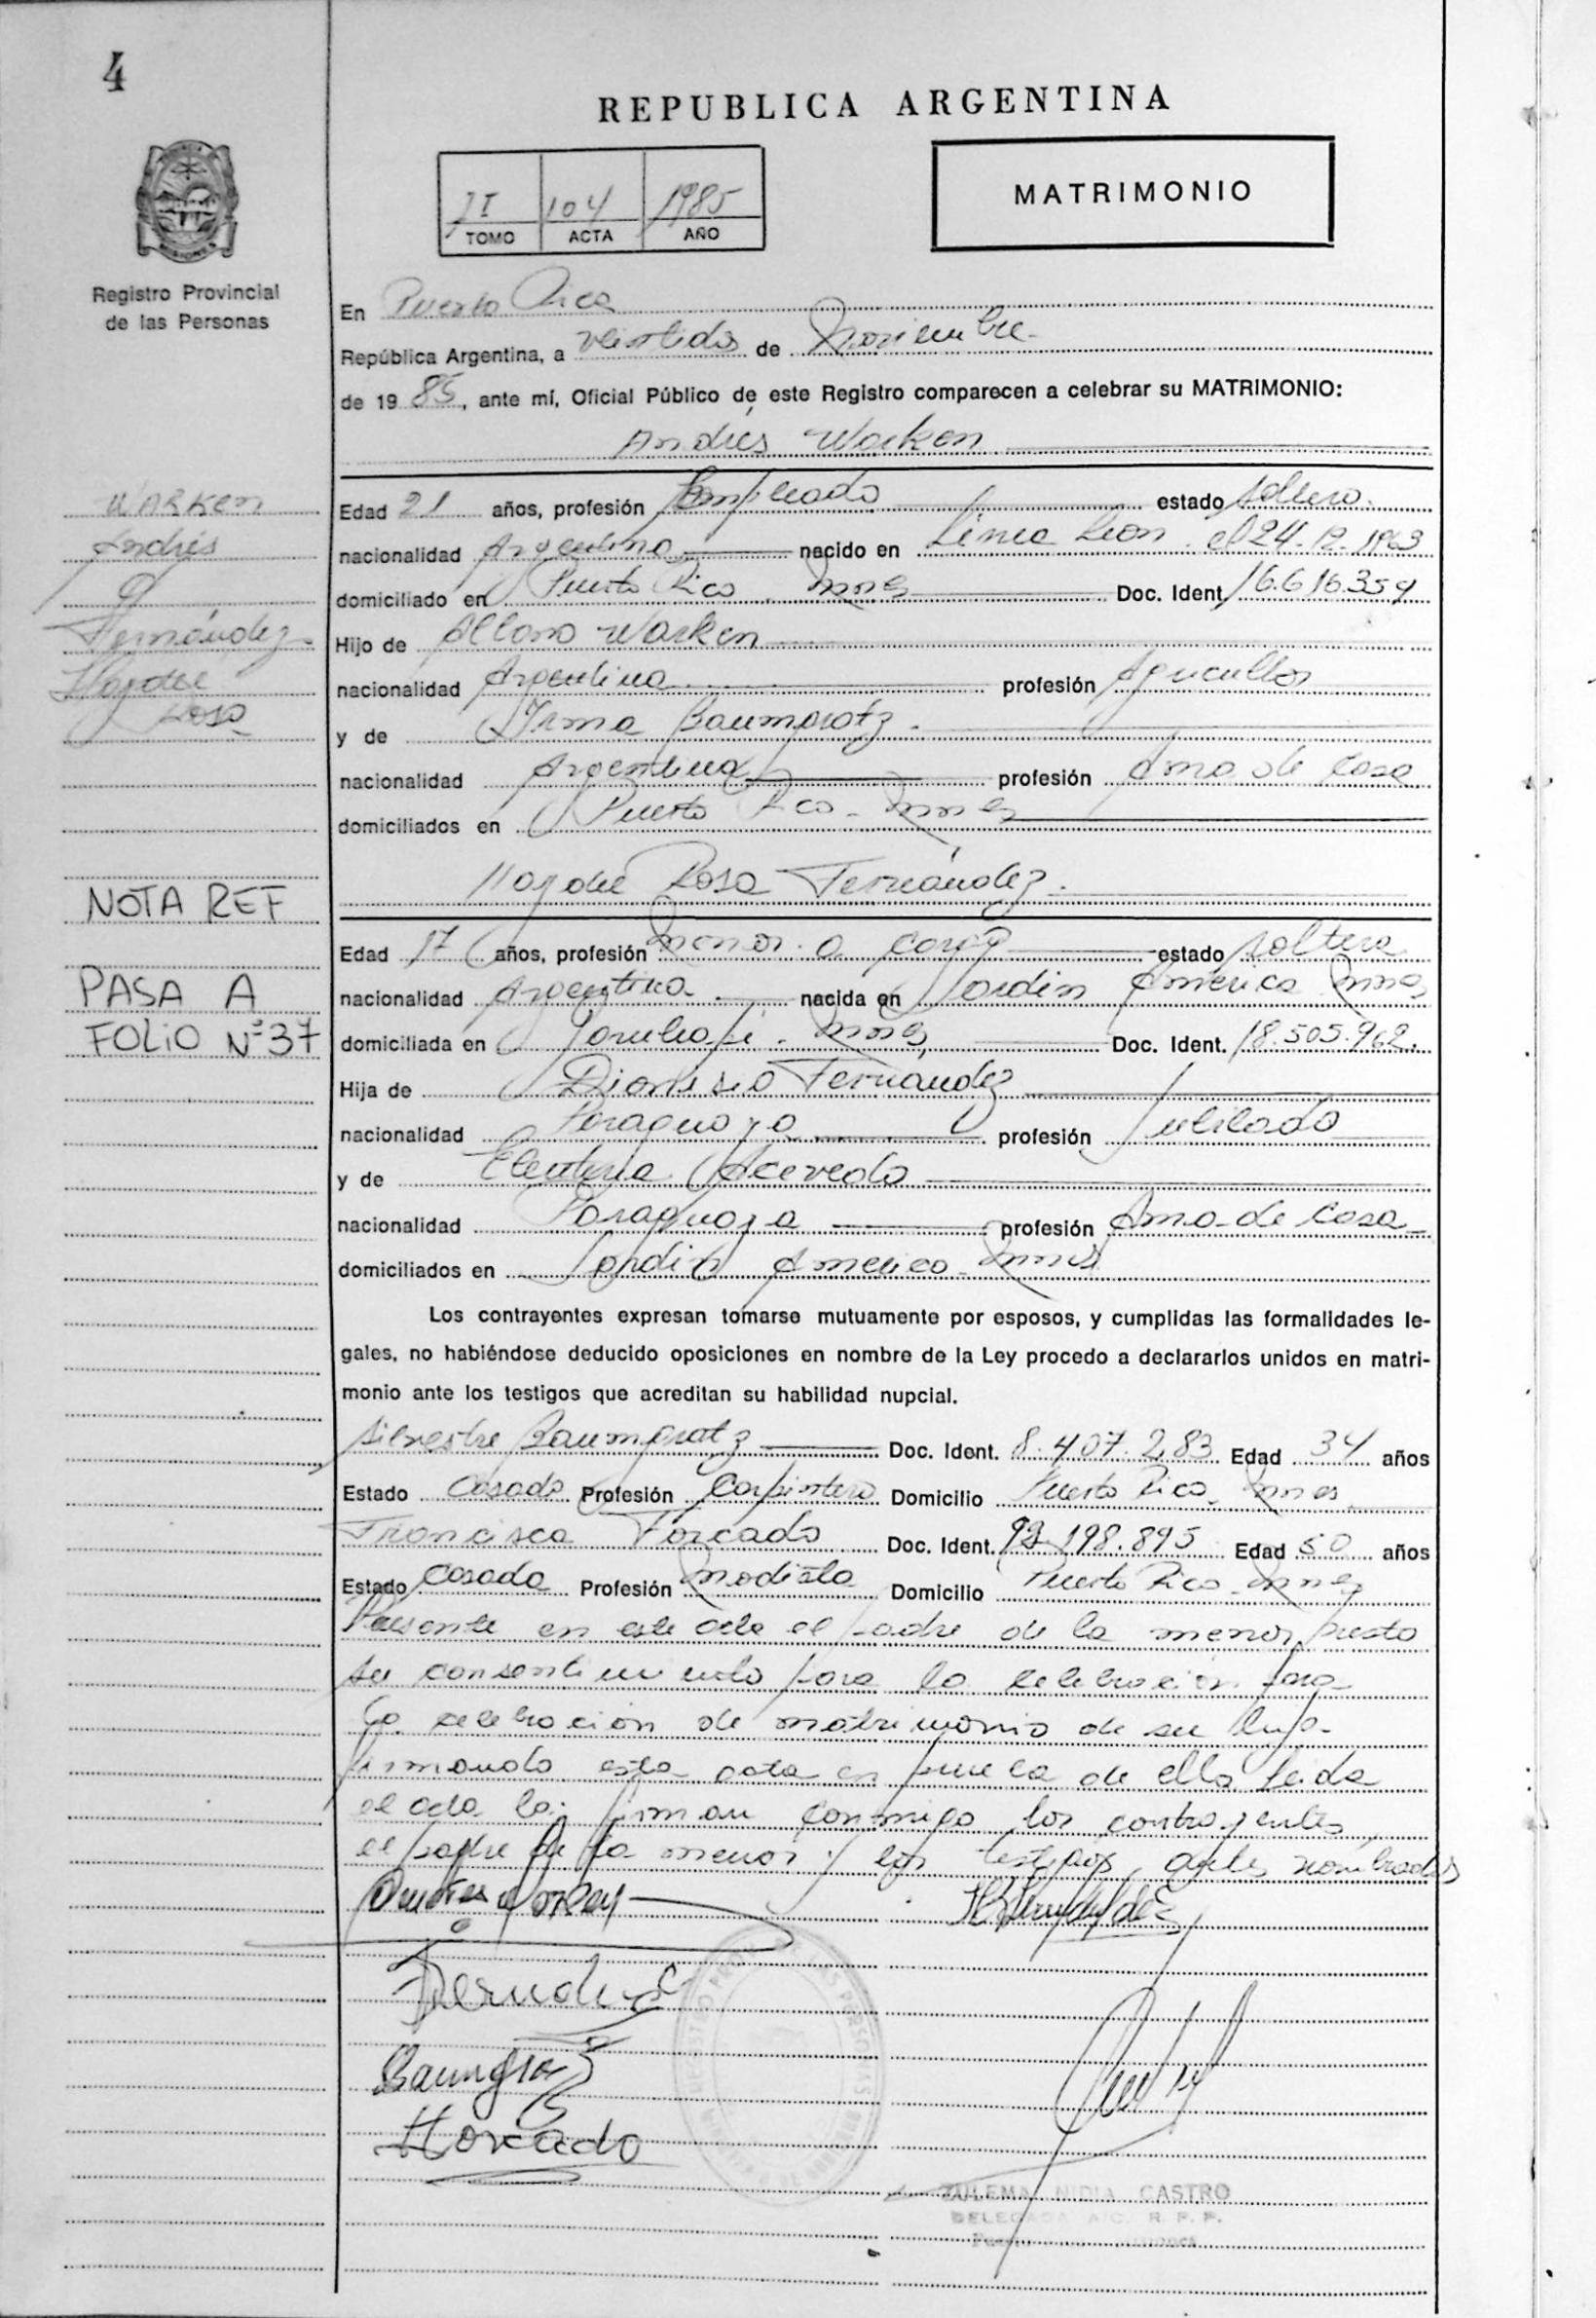 4
REPUBLICA ARGENTINA
MATRIMONIO
II 104 1985
TOMO ACTA AÑO
Registro Provincial
de las Personas
En Puerto Rico
República Argentina, a veintidos de Noviembre
de 19 85, ante mí, Oficial Público de este Registro comparecen a celebrar su MATRIMONIO:
Andrés Warken
WARKEN
Andrés
y
Fernández
Haydee
Rosa
NOTA REF
PASA A
FOLIO Nº 37
Edad 21 años, profesión Empleado estado soltero.
nacionalidad Argentina nacido en Linea Leon el 24-12-1963
domiciliado en Puerto Rico Mnes Doc. Ident. 16.616.359
Hijo de Warken
nacionalidad Argentina profesión Agricultor
y de Irma Baumgratz.
nacionalidad Argentina profesión Ama de Casa
domiciliados en Puerto Rico - Mnes
Haydee Rosa Fernández.
Edad 17 años, profesión Menor a cargo estado soltera
nacionalidad Argentina nacida en Jardin America Mnes
domiciliada en Mnes Doc. Ident. 18.505.962.
Hija de Dionisio Fernandez
nacionalidad Paraguaya profesión Jubilado
y de Acevedo
nacionalidad Paraguaya profesión Ama de Casa
domiciliados en Jardin America - Mnes
Los contrayentes expresan tomarse mutuamente por esposos, y cumplidas las formalidades le-
gales, no habiéndose deducido oposiciones en nombre de la Ley procedo a declararlos unidos en matri-
monio ante los testigos que acreditan su habilidad nupcial.
Silvestre Baumgratz Doc. Ident. 8.407.283 Edad 34 años
Estado Casado Profesión Carpintero Domicilio Puerto Rico - Mnes
Francisca Doc. Ident. 198.895 Edad 50 años
Estado Casada Profesión Modista Domicilio Puerto Rico - Mnes
Presente en este acto el padre de la menor presta
su consentimiento para la celebracion para
la celebracion de matrimonio de su hija
firmando esta acta en prueba de ello Leida
el acta la firman conmigo los contrayentes,
el padre de la menor y los testigos antes nombrados
ZULEMA NIDIA CASTRO
DELEGADA A/C. R. P. P.